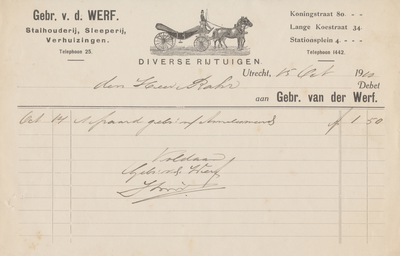 Gebr. v. d. WERF.
Stalhouderij, Sleeperij,
Verhuizingen.
Telephoon 25.
Koningstraat 80
Lange Koestraat 34
Stationsplein 4
Telephoon 1442.
DIVERSE RIJTUIGEN.
Utrecht, 15 Oct 1910
den Heer
Debet
aan Gebr. van der Werf.
Oct 14 1 paard f 1 50
Voldaan
Gebr v d Werf